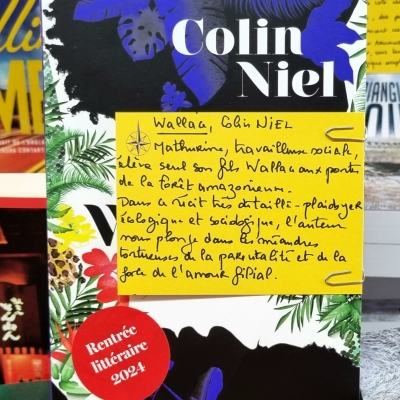 Colin
Niel
Wallace, Colin NIEL
Mathurine, travailleuse sociale,
élève seul son fils Wallace aux portes
de la forêt amazonienne.
Dans ce récit très détaillé - plaidoyer
écologique et sociologique, l'auteur
nous plonge dans les méandres
tortueuses de la parentalité et de la
force de l'amour filial.
W
Rentrée
littéraire
2024